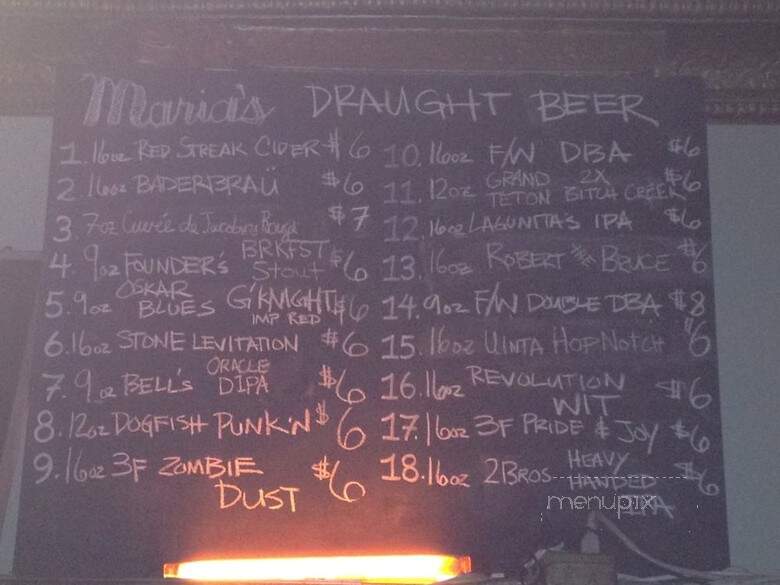 Maria's DRAUGHT BEER
1. 16oz RED STREAK CIDER $6
2. 16oz BADERBRAÜ $6
3 7oz Cuvée de Jacobins Rouge $7
4. 9oz FOUNDER'S BRKFST STOUT $6
5. 9oz OSKAR BLUES G'KNIGHT IMP RED $6
6. 16oz STONE LEVITATION $6
7. 9oz BELL'S ORACLE DIPA $6
8. 12oz DOGFISH PUNK'N $6
9. 16oz 3F ZOMBIE DUST $6
10. 16oz F/W DBA $6
11. 12oz GRAND TETON 2X BITCH CREEK $6
12 16oz LAGUNITAS IPA $6
13. 16oz ROBERT THE BRUCE $6
14. 9oz F/W DOUBLE DBA $8
15. 16oz UINTA HOP NOTCH $6
16. 16oz REVOLUTION WIT $6
17. 16oz 3F PRIDE & JOY $6
18. 16oz 2BROS HEAVY HANDED IPA $6
menupix